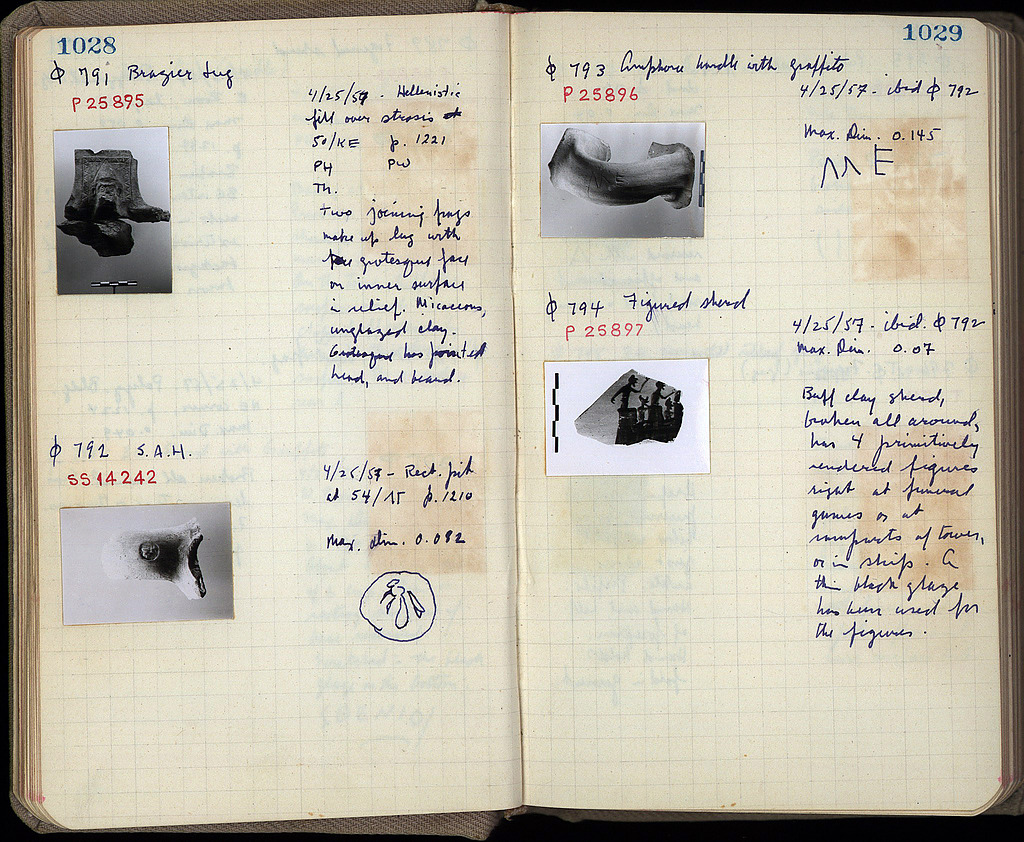 1028
Φ 791 Brazier Lug
P 25895
4/25/57 - Hellenistic
fill over strosis
50/ΚΕ p. 1221
PH PW
Th.
Two joining frags
make up lug with
grotesque face
on inner surface
in relief. Micaceous,
unglazed clay.
Grotesque has pointed
head, and beard.
Φ 792 S.A.H.
SS 14242
4/25/57 - Rect. pit
at 54/ΙΕ p. 1210
Max. dim. 0.092
1029
Φ 793 Amphora handle with graffito
P 25896
4/25/57 - ibid Φ 792
Max. Dim. 0.145
Φ 794 Figured sherd
P 25897
4/25/57 - ibid. Φ 792
Max. Dim. 0.07
Buff clay sherd,
broken all around,
has 4 primitively
rendered figures
right at funeral
games or at
ramparts of tower,
or in ship. A
thin black glaze
has been used for
the figures.